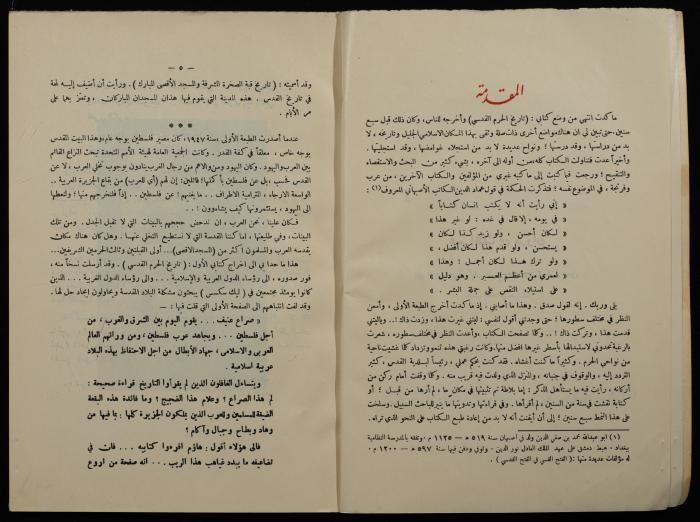 المقدمة
ما كدت انتهي من وضع كتابي : (تاريخ الحرم القدسي) وأخرجه للناس، وكان ذلك قبل سبع
سنين، حتى تبين لي ان هناك مواضع أخرى ذات صلة وثقى بهذا المكان الاسلامي الجليل وتاريخه ، لا
بد من دراستها ، وقد درستها ؛ ونواح عديدة لا بد من استجلاء غوامضها ، وقد استجليتها .
وأخيراً عدت فتناولت الكتاب كله ، من أوله الى آخره ، بشيء كثير من البحث والاستقصاء
والتنقيح ؛ ورجعت فيما كتبت إلى ما كتبه غيري من المؤلفين والكتاب الآخرين ، من عرب
وفرنجة ، في الموضوع نفسه ؛ فتذكرت الحكمة في قول عماد الدين الكاتب الأصبهاني المعروف (١) :
« إني رأيت أنه لا يكتب انسان كتاباً »
« في يومه ، إلا قال في غده : لو غير هذا »
« لكان أحسن ، ولو زيد كذا لكان »
« يستحسن . ولو قدم هذا لكان أفضل ، »
« ولو ترك هذا لكان أجمل : وهذا »
« لعمري من أعظم العبر . وهو دليل »
« على استيلاء النقص على جملة البشر . »
بلى وربك . إنه لقول صدق . وهذا ما أصابني . إذ ما كدت أخرج الطبعة الأولى ، وأمعن
النظر في مختلف سطورها ؛ حتى وجدتني أقول لنفسي : ليتني غيرت هذا ، وزدت ذاك !.. وياليتني
قدمت هذا ، وتركت ذاك ! .. وكلما تصفحت الكتاب ، وأعدت النظر في مختلف سطوره ، شعرت
بالرغبة تحدوني لاستبدالها بأسطر غيرها افضل منها. وكانت رغبتي هذه تنمو وتزداد كلما غشيت ناحية
من نواحي الحرم . وكثيراً ما كنت أغشاه . فقد كنت بحكم عملي ، رئيساً لبلدية القدس ، كثير
التردد إليه ، والوقوف في جنباته . والمنزل الذي ولدت فيه قريب منه . وكلما وقفت أمام ركن من
أركانه ، رأيت فيه ما يستأهل الذكر : إما بلاطة تم تثبيتها في مكان ما ، لم أرها من قبل ؛ أو
كتابة نقشت في سنة من السنين ، لم أقرأها . وفي قراءتها وتدوينها ما ينير للباحث السبيل. وسلخت
على هذا النمط سبع سنين ؛ إلى أن أيقنت أنه لا بد من إعادة طبع الكتاب على النحو الذي تراه .
(١) ابو عبدالله محمد بن صفي الدين ولد في أصبهان سنة ٥١٩ هـ — ١١٢٥ م . وتفقه بالمدرسة النظامية
ببغداد . هبط دمشق على عهد الملك العادل نور الدين . وتوفي ودفن فيها سنة ٥٩٧ هـ — ١٢٠٠ م .
له مؤلفات عديدة منها : (الفتح القسي في الفتح القدسي) .
— ٥ —
وقد أسميته : (تاريخ قبة الصخرة المشرفة والمسجد الأقصى المبارك) . ورأيت أن أضيف إليه لمحة
في تاريخ القدس . هذه المدينة التي يقوم فيها هذان المسجدان المباركان . وتعتز بهما على
مر الأيام .
***
عندما أصدرت الطبعة الأولى ، سنة ١٩٤٧ ، كان مصير فلسطين بوجه عام ، وهذا البيت المقدس
بوجه خاص ، معلقاً في كفة القدر . وكانت الجمعية العامة لهيئة الأمم المتحدة تبحث النزاع القائم
بين العرب واليهود . وكان اليهود ومن والاهم من رجال الغرب ينادون بوجوب تخلي العرب ، لا عن
القدس فحسب ، بل عن فلسطين بأكملها ؛ قائلين : إن لهم (أي للعرب) من بقاع الجزيرة العربية ..
الواسعة الارجاء ، المترامية الاطراف .. ما يغنيهم ! عن فلسطين .. إذاً فلنخرجهم منها ؛ ولنعطها
الى اليهود ، يستثمرونها كيف يشاءوون ! ..
فكان علينا ، نحن العرب ، ان ندحض حججهم بالبينات التي لا تقبل الجدل . ومن تلك
البينات ، وفي طليعتها ، اماكننا المقدسة التي لا نستطيع التخلي عنها . وهل كان هناك مكان
يقدسه العرب والمسلمون اكثر من (المسجد الاقصى) ... أولى القبلتين وثالث الحرمين الشريفين...
هذا ما حدا بي الى اخراج كتابي الأول : (تاريخ الحرم القدسي) . وقد أرسلت نسخاً منه ،
فور صدوره ، الى رؤساء الدول العربية والإسلامية ... والى رؤساء الدول الغربية ... الذين
كانوا يومئذ مجتمعين في (ليك سكسس) يبحثون مشكلة البلاد المقدسة ويحاولون إيجاد حل لها .
وقد لفت انتباههم الى الصفحة الأولى التي قلت فيها : —
« صراع عنيف ... يقوم اليوم بين الشرق والغرب ، من
أجل فلسطين ... ويجاهد عرب فلسطين ، ومن ورائهم العالم
العربى والاسلامى ، جهاد الأبطال من أجل الاحتفاظ بهذه البلاد
عربية اسلامية .
ويتساءل الغافلون الذين لم يقرأوا التاريخ قراءة صحيحة :
لم هذا الصراع ؟ وعلام هذا الضجيج ؟ وما فائدة هذه البقعة
الضيقة للمسلمين وللعرب الذين يملكون الجزيرة كلها : بما فيها من
وهاد وبطاح وجبال وآكام ؟
فالى هؤلاء أقول : هاؤم اقرءوا كتابيه ... فان في
تضاعيفه ما يبدد غياهب هذا الريب ... انه صفحة من اروع